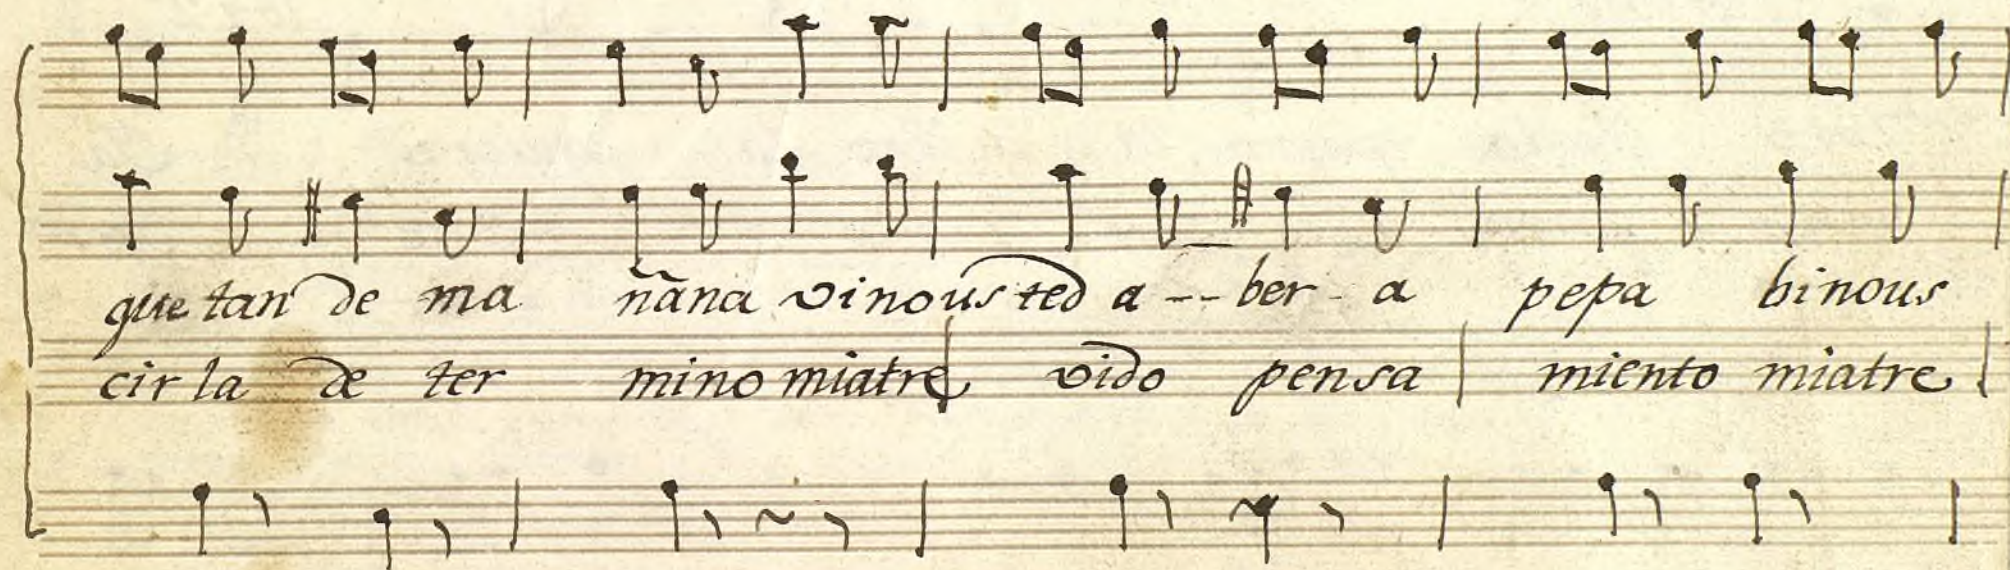 que tan de ma ñana vinousted a -- ber - a pepa binous
cir la de ter mino miatre vido pensa miento miatre